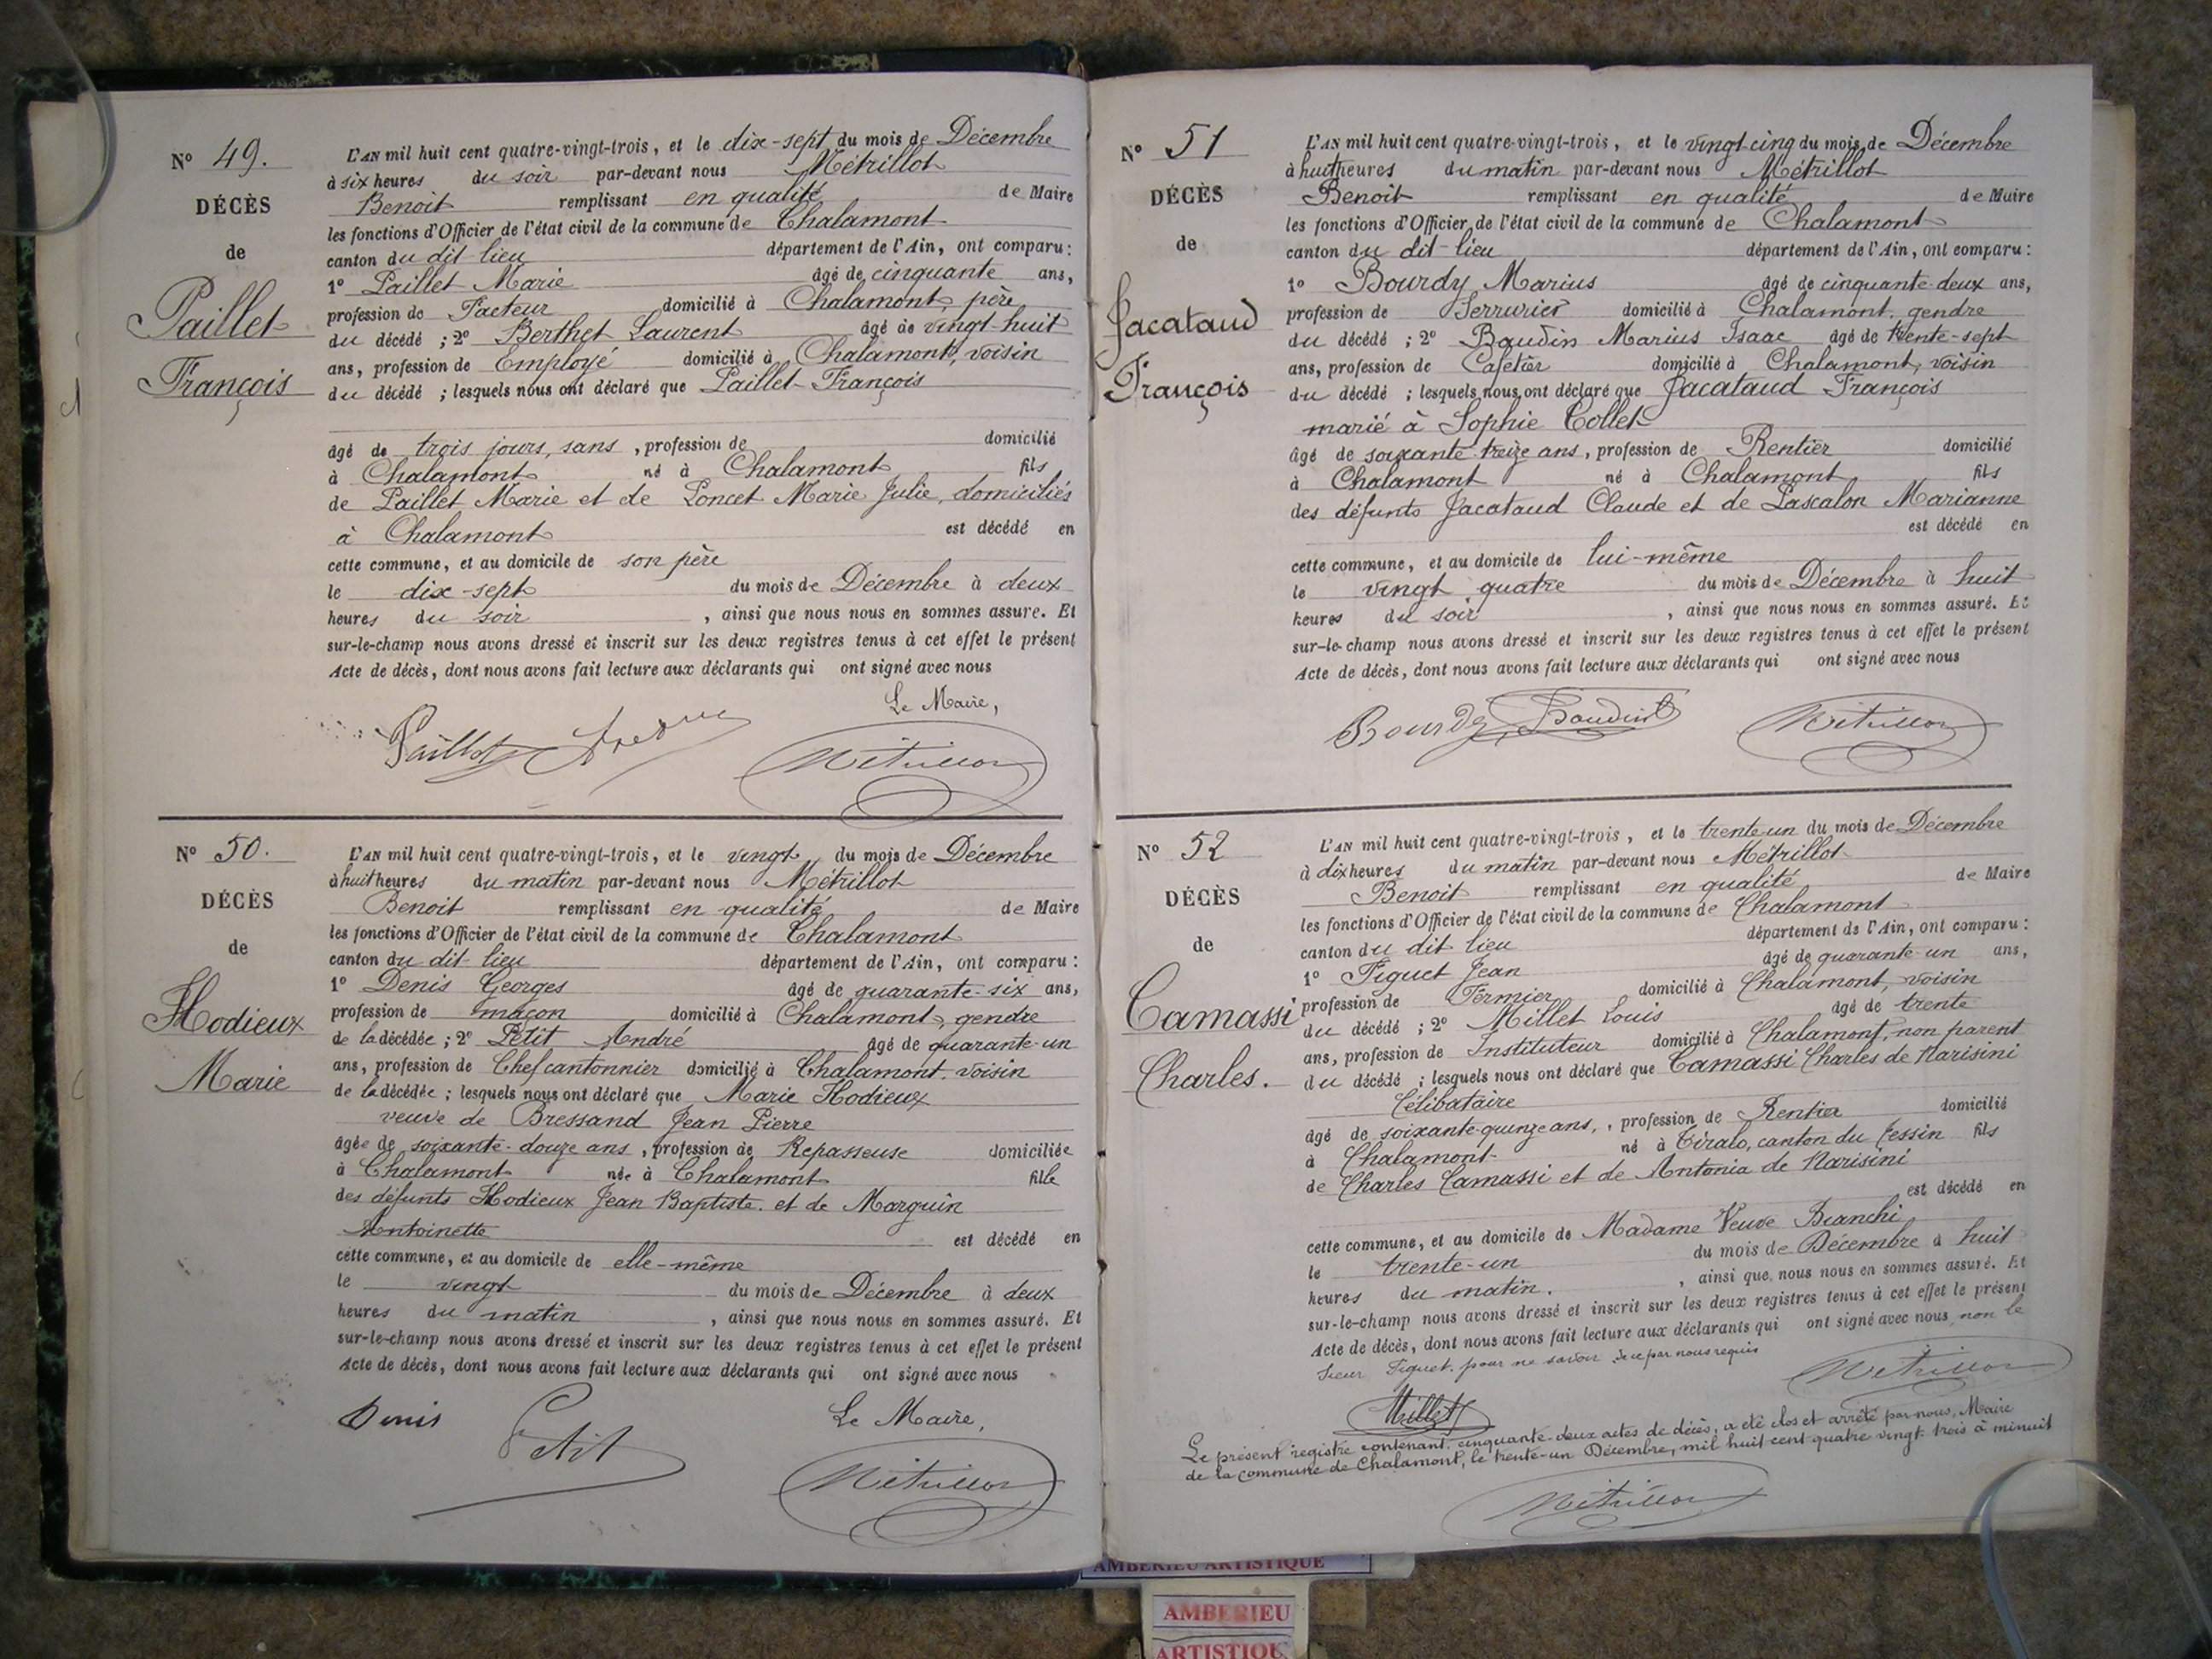 N° 49.
DÉCÈS
de
Paillet
François
L'AN mil huit cent quatre-vingt-trois, et le dix-sept du mois de Décembre
à six heures du soir par-devant nous Métrillot
Benoit remplissant en qualité de Maire
les fonctions d'Officier de l'état civil de la commune de Chalamont
canton du dit lieu département de l'Ain, ont comparu :
1° Paillet Marie âgé de cinquante ans,
profession de Facteur domicilié à Chalamont, père
du décédé ; 2° Berthet Laurent âgé de vingt-huit
ans, profession de Employé domicilié à Chalamont, voisin
du décédé ; lesquels nous ont déclaré que Paillet François
âgé de trois jours, sans , profession de domicilié
à Chalamont né à Chalamont fils
de Paillet Marie et de Poncet Marie Julie, domiciliés
à Chalamont est décédé en
cette commune, et au domicile de son père
le dix-sept du mois de Décembre à deux
heures du soir , ainsi que nous nous en sommes assuré. Et
sur-le-champ nous avons dressé et inscrit sur les deux registres tenus à cet effet le présent
Acte de décès, dont nous avons fait lecture aux déclarants qui ont signé avec nous
Le Maire,
Paillet
Métrillot
N° 50.
DÉCÈS
de
Hodieux
Marie
L'AN mil huit cent quatre-vingt-trois, et le vingt du mois de Décembre
à huit heures du matin par-devant nous Métrillot
Benoit remplissant en qualité de Maire
les fonctions d'Officier de l'état civil de la commune de Chalamont
canton du dit lieu département de l'Ain, ont comparu :
1° Denis Georges âgé de quarante-six ans,
profession de maçon domicilié à Chalamont, gendre
de la décédée ; 2° Petit André âgé de quarante-un
ans, profession de Chef cantonnier domicilié à Chalamont, voisin
de la décédée ; lesquels nous ont déclaré que Marie Hodieux
veuve de Bressand Jean Pierre
âgée de soixante-douze ans , profession de Repasseuse domiciliée
à Chalamont née à Chalamont fille
des défunts Hodieux Jean Baptiste. et de Marguin
Antoinette est décédé en
cette commune, et au domicile de elle-même
le vingt du mois de Décembre à deux
heures du matin , ainsi que nous nous en sommes assuré. Et
sur-le-champ nous avons dressé et inscrit sur les deux registres tenus à cet effet le présent
Acte de décès, dont nous avons fait lecture aux déclarants qui ont signé avec nous
Denis Petit Le Maire,
Métrillot
N° 51
DÉCÈS
de
Jacataud
François
L'AN mil huit cent quatre-vingt-trois, et le vingt-cinq du mois de Décembre
à huit heures du matin par-devant nous Métrillot
Benoit remplissant en qualité de Maire
les fonctions d'Officier de l'état civil de la commune de Chalamont
canton du dit lieu département de l'Ain, ont comparu :
1° Bourdy Marius âgé de cinquante-deux ans,
profession de Serrurier domicilié à Chalamont, gendre
du décédé ; 2° Baudin Marius Isaac âgé de trente-sept
ans, profession de Cafetier domicilié à Chalamont, voisin
du décédé ; lesquels nous ont déclaré que Jacataud François
marié à Sophie Collet
âgé de soixante-treize ans, profession de Rentier domicilié
à Chalamont né à Chalamont fils
des défunts Jacataud Claude et de Pascalon Marianne
est décédé en
cette commune, et au domicile de lui-même
le vingt quatre du mois de Décembre à huit
heures du soir , ainsi que nous nous en sommes assuré. Et
sur-le-champ nous avons dressé et inscrit sur les deux registres tenus à cet effet le présent
Acte de décès, dont nous avons fait lecture aux déclarants qui ont signé avec nous
Bourdy Baudin Métrillot
N° 52
DÉCÈS
de
Camassi
Charles.
L'AN mil huit cent quatre-vingt-trois, et le trente-un du mois de Décembre
à dix heures du matin par-devant nous Métrillot
Benoit remplissant en qualité de Maire
les fonctions d'Officier de l'état civil de la commune de Chalamont
canton du dit lieu département de l'Ain, ont comparu :
1° Figuet Jean âgé de quarante-un ans,
profession de Fermier domicilié à Chalamont, voisin
du décédé ; 2° Millet Louis âgé de trente
ans, profession de Instituteur domicilié à Chalamont, non parent
du décédé ; lesquels nous ont déclaré que Camassi Charles de Narisini
Célibataire
âgé de soixante-quinze ans, , profession de Rentier domicilié
à Chalamont né à Tiralo, canton du Tessin fils
de Charles Camassi et de Antonia de Narisini
est décédé en
cette commune, et au domicile de Madame Veuve Bianchi
le trente-un du mois de Décembre à huit
heures du matin. , ainsi que nous nous en sommes assuré. Et
sur-le-champ nous avons dressé et inscrit sur les deux registres tenus à cet effet le présent
Acte de décès, dont nous avons fait lecture aux déclarants qui ont signé avec nous non le
Sieur Figuet, pour ne savoir de ce par nous requis
Métrillot
Millet
Le présent registre contenant cinquante-deux actes de décès, a été clos et arrêté par nous, Maire
de la commune de Chalamont, le trente-un Décembre, mil huit cent quatre vingt trois à minuit
Métrillot
AMBERIEU ARTISTIQUE
AMBERIEU
ARTISTIQUE